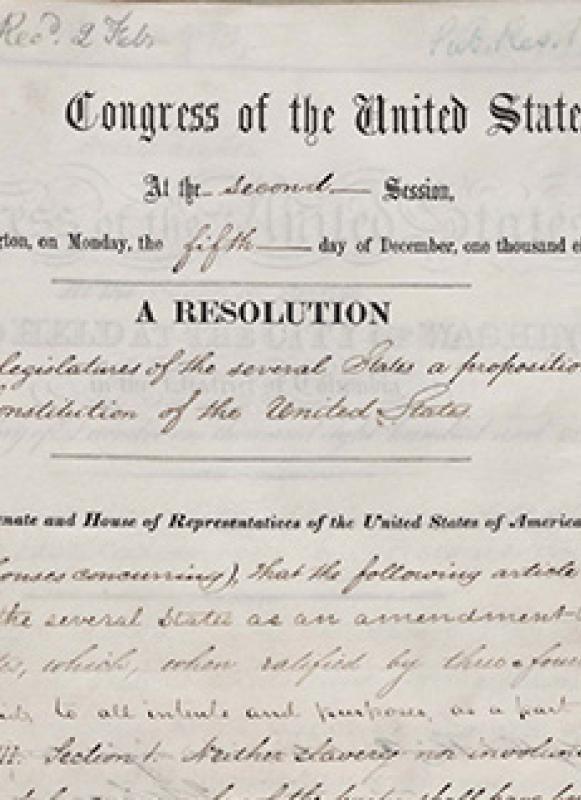 Rec'd. 2 Feb
Pub. Res. 1
Congress of the United State
At the second Session,
gton, on Monday, the fifth day of December, one thousand ei
A RESOLUTION
legislatures of the several States a propositio
onstitution of the United States.
enate and House of Representatives of the United States of America
ouses concurring), that the following article
the several States as an amendment
es, which, when ratified by three-four
to all intents and purposes, as a part
Section 1. Neither slavery nor involun
shall have be